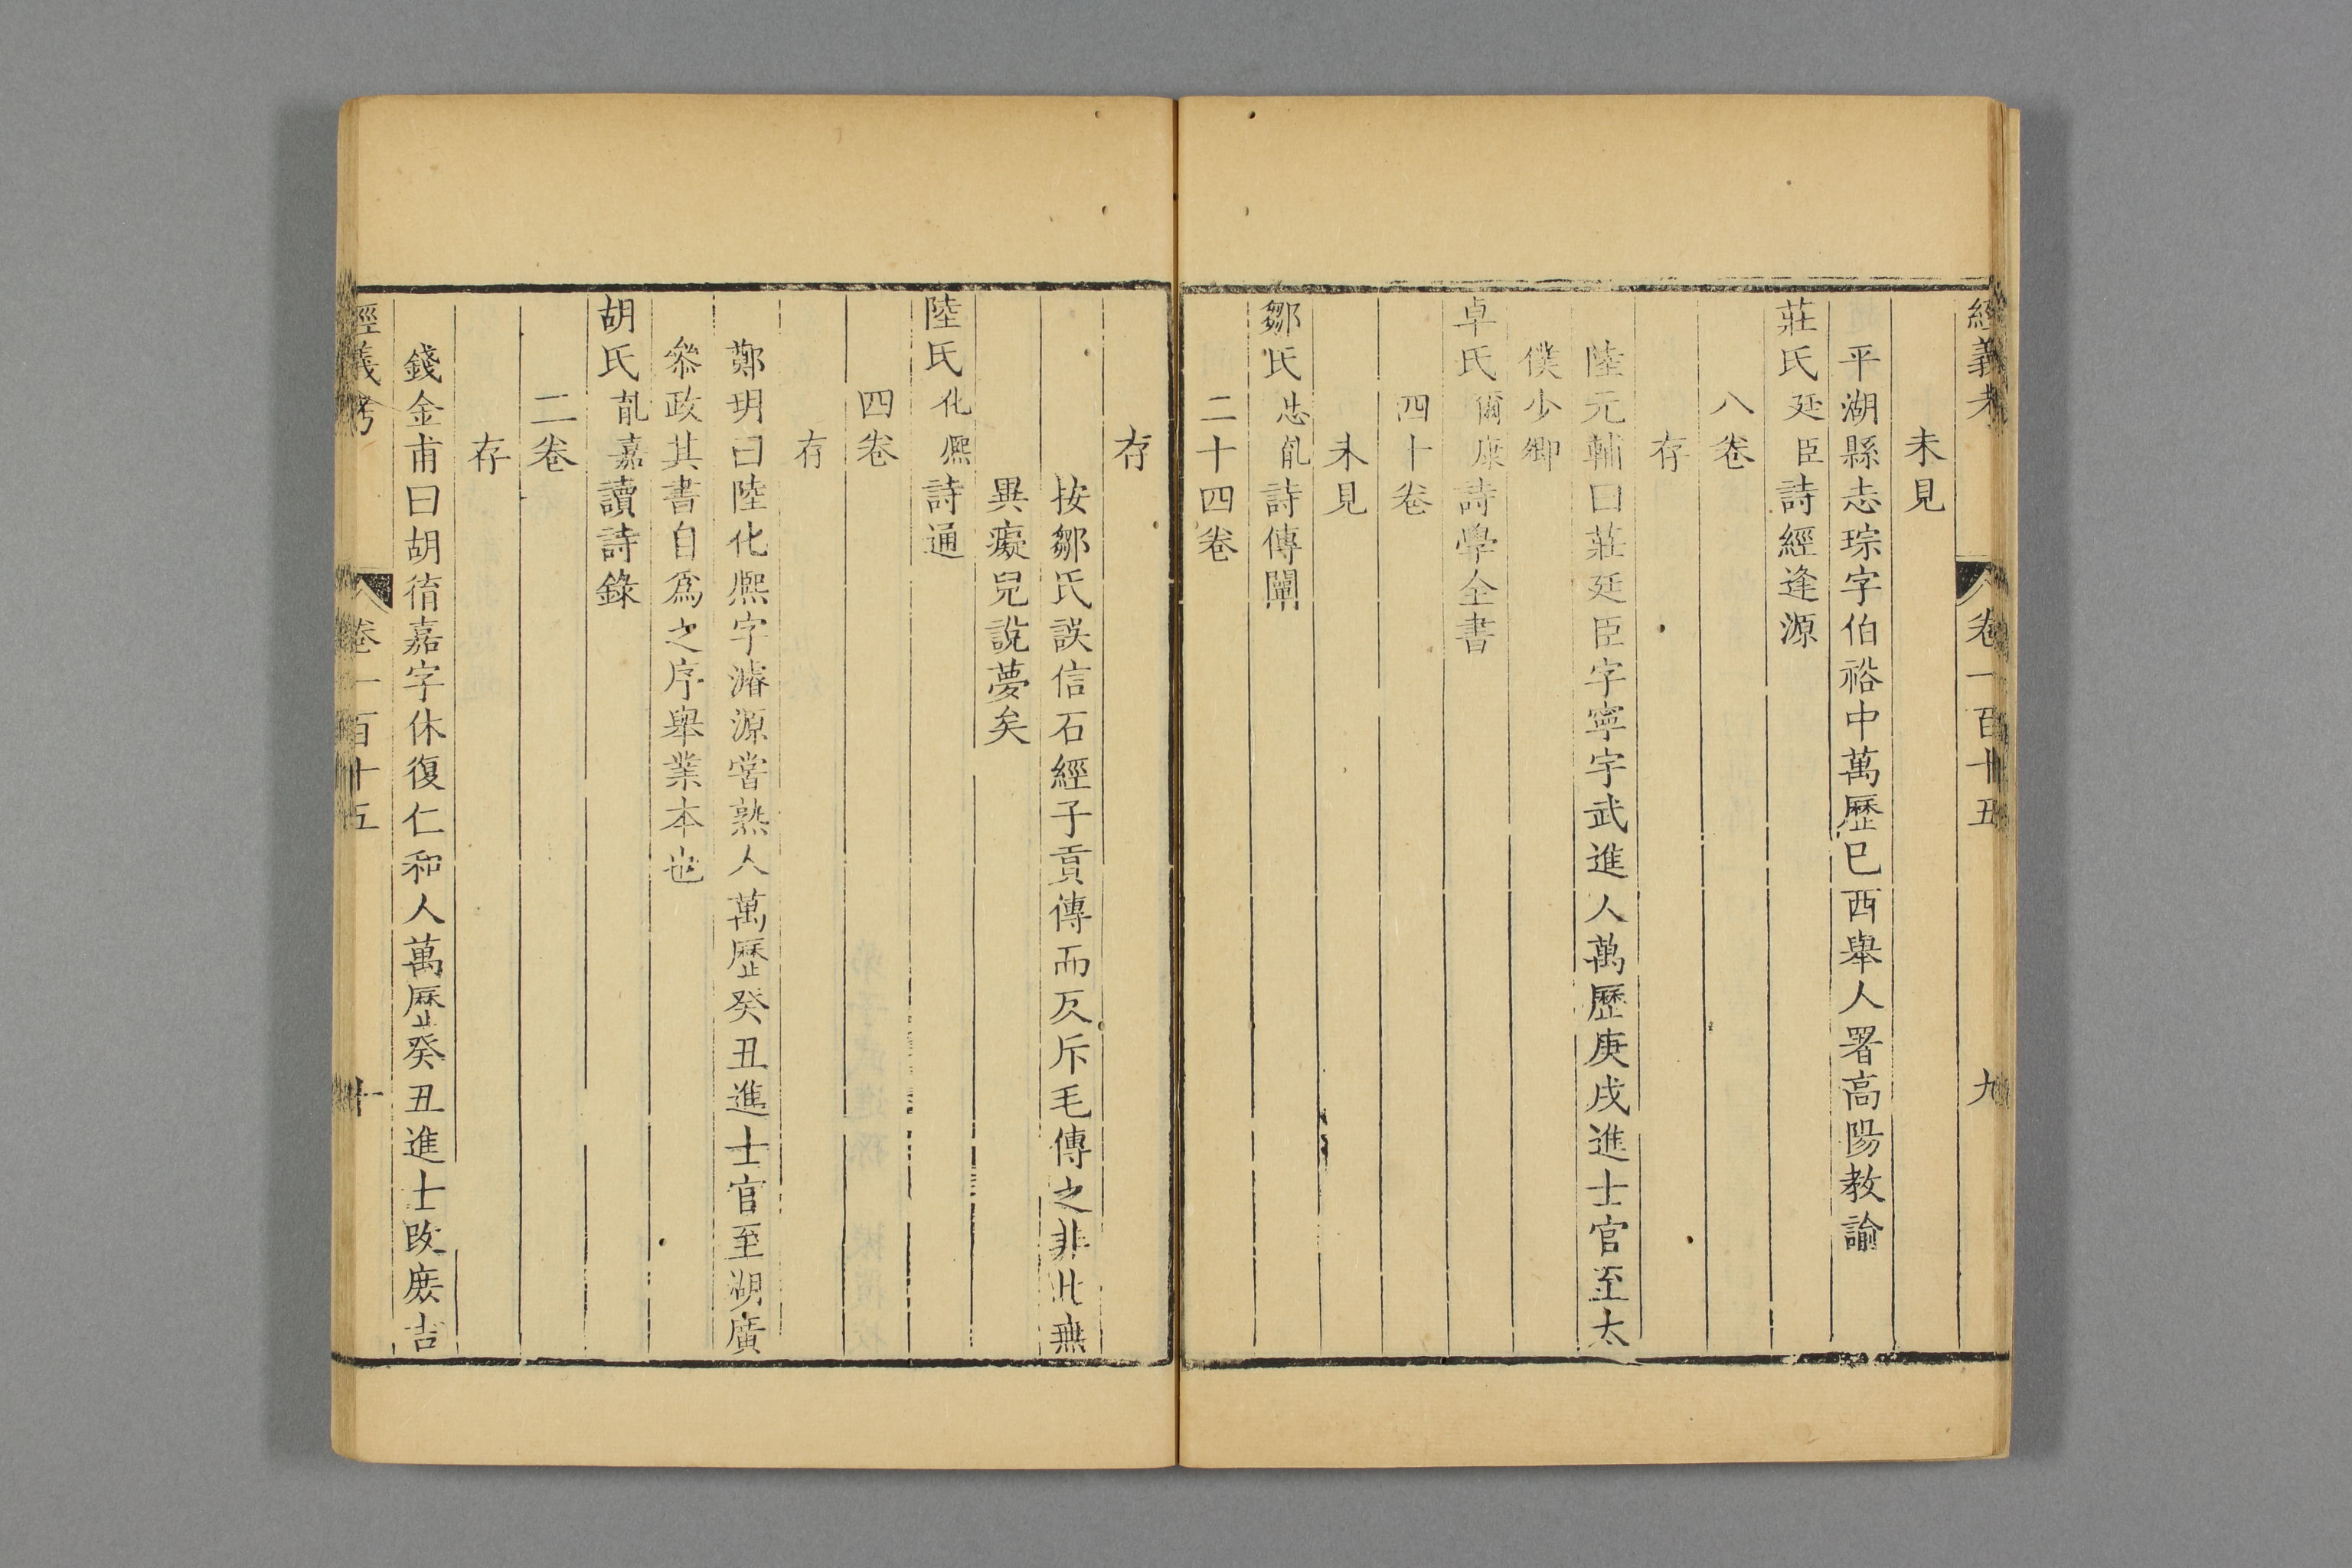 經義考 卷一百十五 九
未見
平湖縣志琮字伯裕中萬歷巳酉舉人署高陽教諭
莊氏廷臣詩經逢源
八卷
存
陸元輔曰莊廷臣字寧宇武進人萬歷庚戌進士官至太
僕少卿
卓氏爾康詩學全書
四十卷
未見
鄒氏忠胤詩傳闡
二十四卷
存
按鄒氏誤信石經子貢傳而反斥毛傳之非此無
異癡兒說夢矣
陸氏化熙詩通
四卷
存
鄭玥曰陸化熙字濬源嘗熟人萬歷癸丑進士官至湖廣
叅政其書自爲之序舉業本也
胡氏胤嘉讀詩錄
二卷
存
錢金甫曰胡胤嘉字休復仁和人萬歷癸丑進士改庶吉
經義考 卷一百十五 十